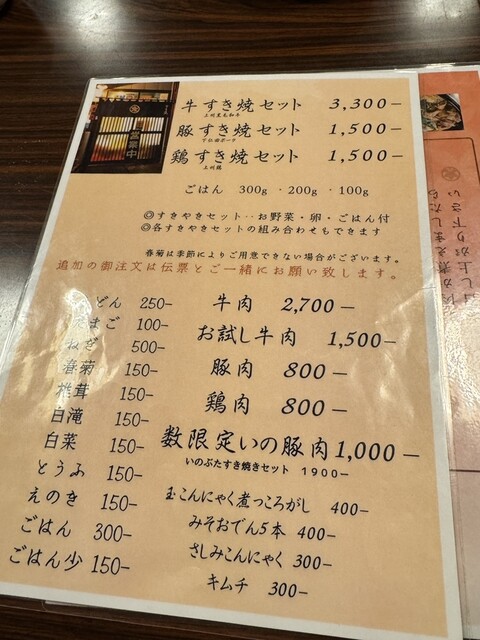 営業中
牛すき焼セット 3,300−
上州黒毛和牛
豚すき焼セット 1,500−
下仁田ポーク
鶏すき焼セット 1,500−
上州鶏
ごはん 300g ・200g ・100g
◎すきやきセット‥お野菜・卵・ごはん付
◎各すきやきセットの組み合わせもできます
春菊は季節によりご用意できない場合がございます。
追加の御注文は伝票とご一緒にお願い致します。
どん 250−
たまご 100−
ねぎ 500−
春菊 150−
椎茸 150−
白滝 150−
白菜 150−
とうふ 150−
えのき 150−
ごはん 300−
ごはん少 150−
牛肉 2,700−
お試し牛肉 1,500−
豚肉 800−
鶏肉 800−
数限定いの豚肉 1,000−
いのぶたすき焼きセット 1900−
玉こんにゃく煮っころがし 400−
みそおでん5本 400−
さしみこんにゃく 300−
キムチ 300−